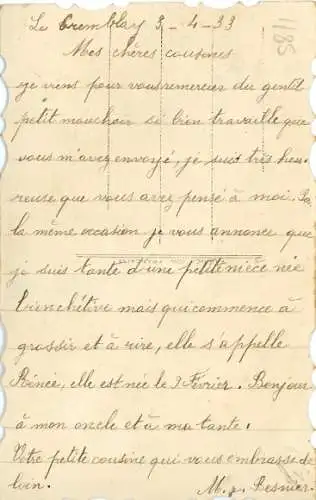 Le Tremblay 3 - 4 - 33
1185
Mes chères cousines
je viens pour vous remercier du gentil
petit mouchoir si bien travaillé que
vous m'avez envoyé, je suis très heu-
reuse que vous avez pensé à moi. Par
la même occasion je vous annonce que
je suis tante d'une petite nièce née
bien chétive mais qui commence à
grossir et à rire, elle s'appelle
Rénée, elle est née le 9 Février. Bonjour
à mon oncle et à ma tante.
Votre petite cousine qui vous embrasse de
loin.
M. Besnier